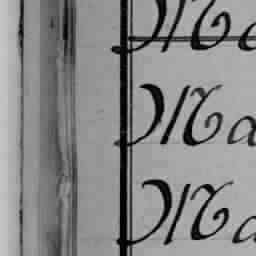 Ma
Ma
Ma